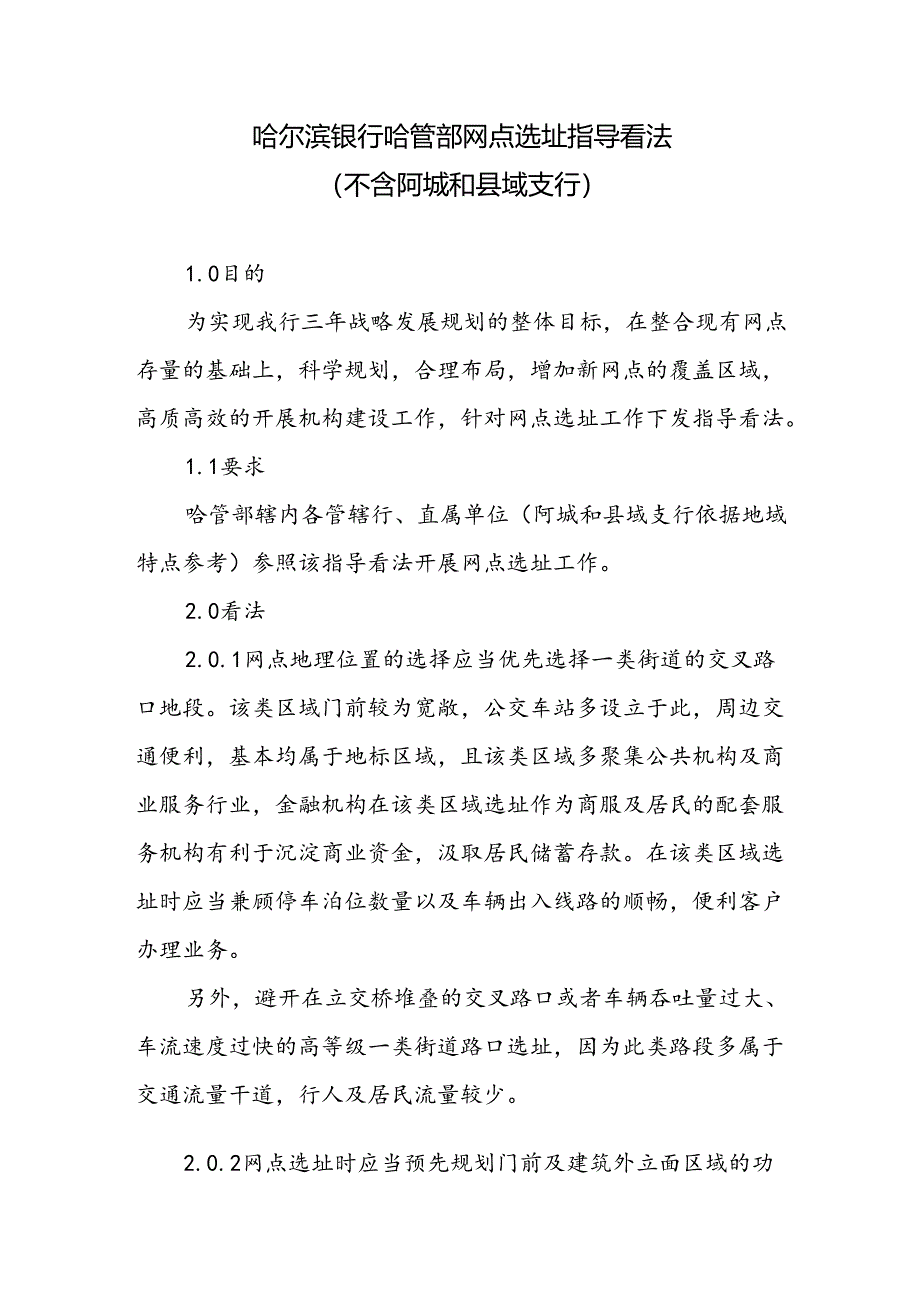 哈尔滨银行哈管部网点选址指导看法
（不含阿城和县域支行）
1.0目的
为实现我行三年战略发展规划的整体目标，在整合现有网点
存量的基础上，科学规划，合理布局，增加新网点的覆盖区域，
高质高效的开展机构建设工作，针对网点选址工作下发指导看法。
1.1要求
哈管部辖内各管辖行、直属单位（阿城和县域支行依据地域
特点参考）参照该指导看法开展网点选址工作。
2.0看法
2.0.1网点地理位置的选择应当优先选择一类街道的交叉路
口地段。该类区域门前较为宽敞，公交车站多设立于此，周边交
通便利，基本均属于地标区域，且该类区域多聚集公共机构及商
业服务行业，金融机构在该类区域选址作为商服及居民的配套服
务机构有利于沉淀商业资金，汲取居民储蓄存款。在该类区域选
址时应当兼顾停车泊位数量以及车辆出入线路的顺畅，便利客户
办理业务。
另外，避开在立交桥堆叠的交叉路口或者车辆吞吐量过大、
车流速度过快的高等级一类街道路口选址，因为此类路段多属于
交通流量干道，行人及居民流量较少。
2.0.2网点选址时应当预先规划门前及建筑外立面区域的功